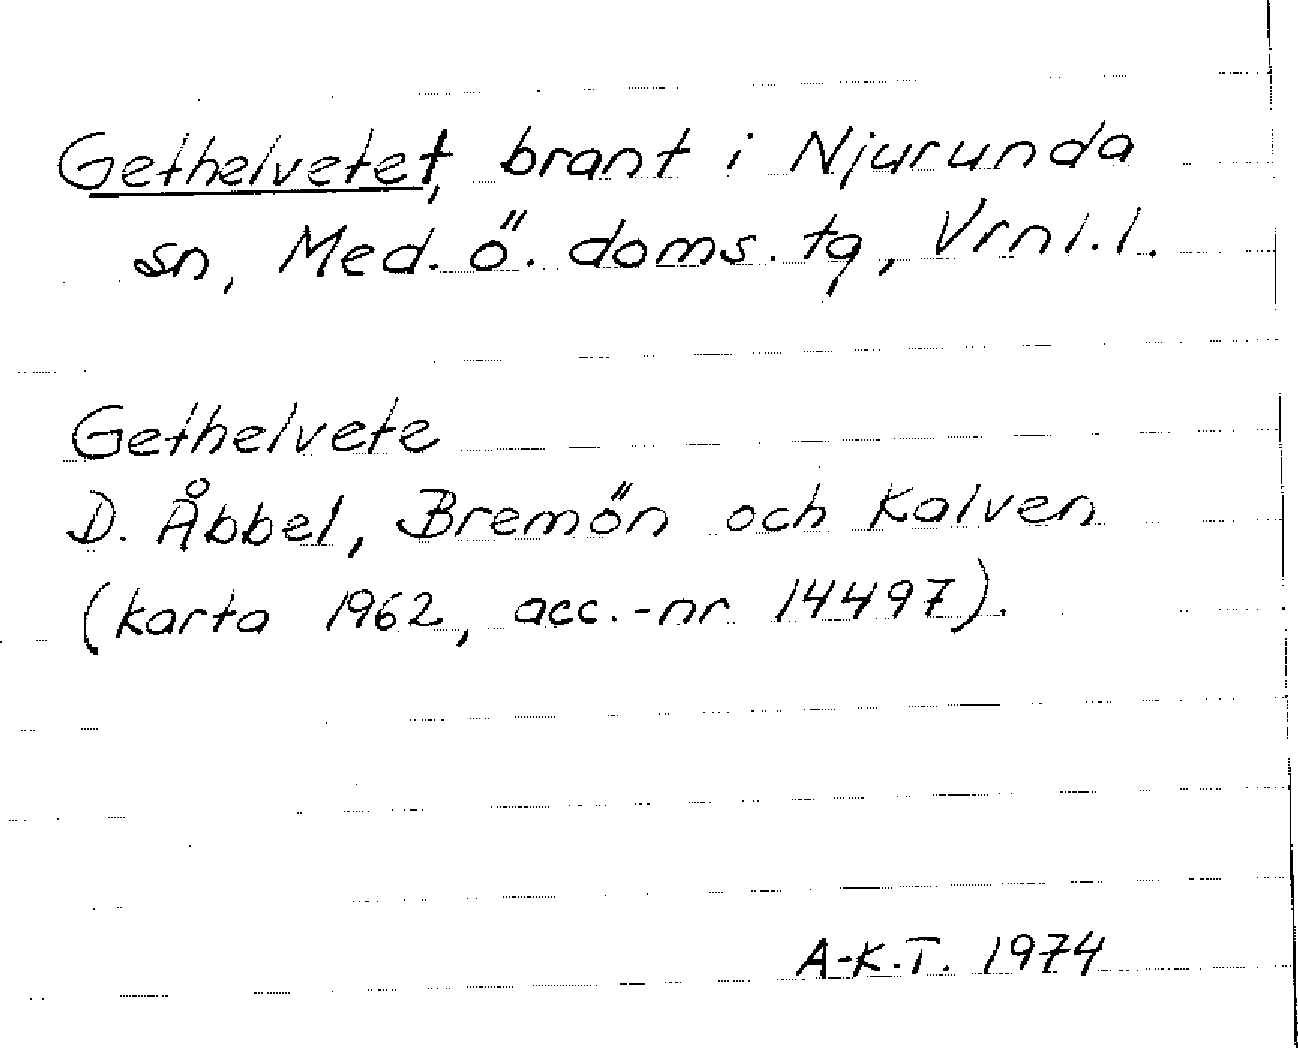 Gethelvetet, brant i Njurunda
sn, Med. ö. doms. tg, Vrnl. l.
Gethelvete
D. Åbbel, Bremön och Kalven
(karta 1962, acc.-nr 14497).
A-K.T. 1974